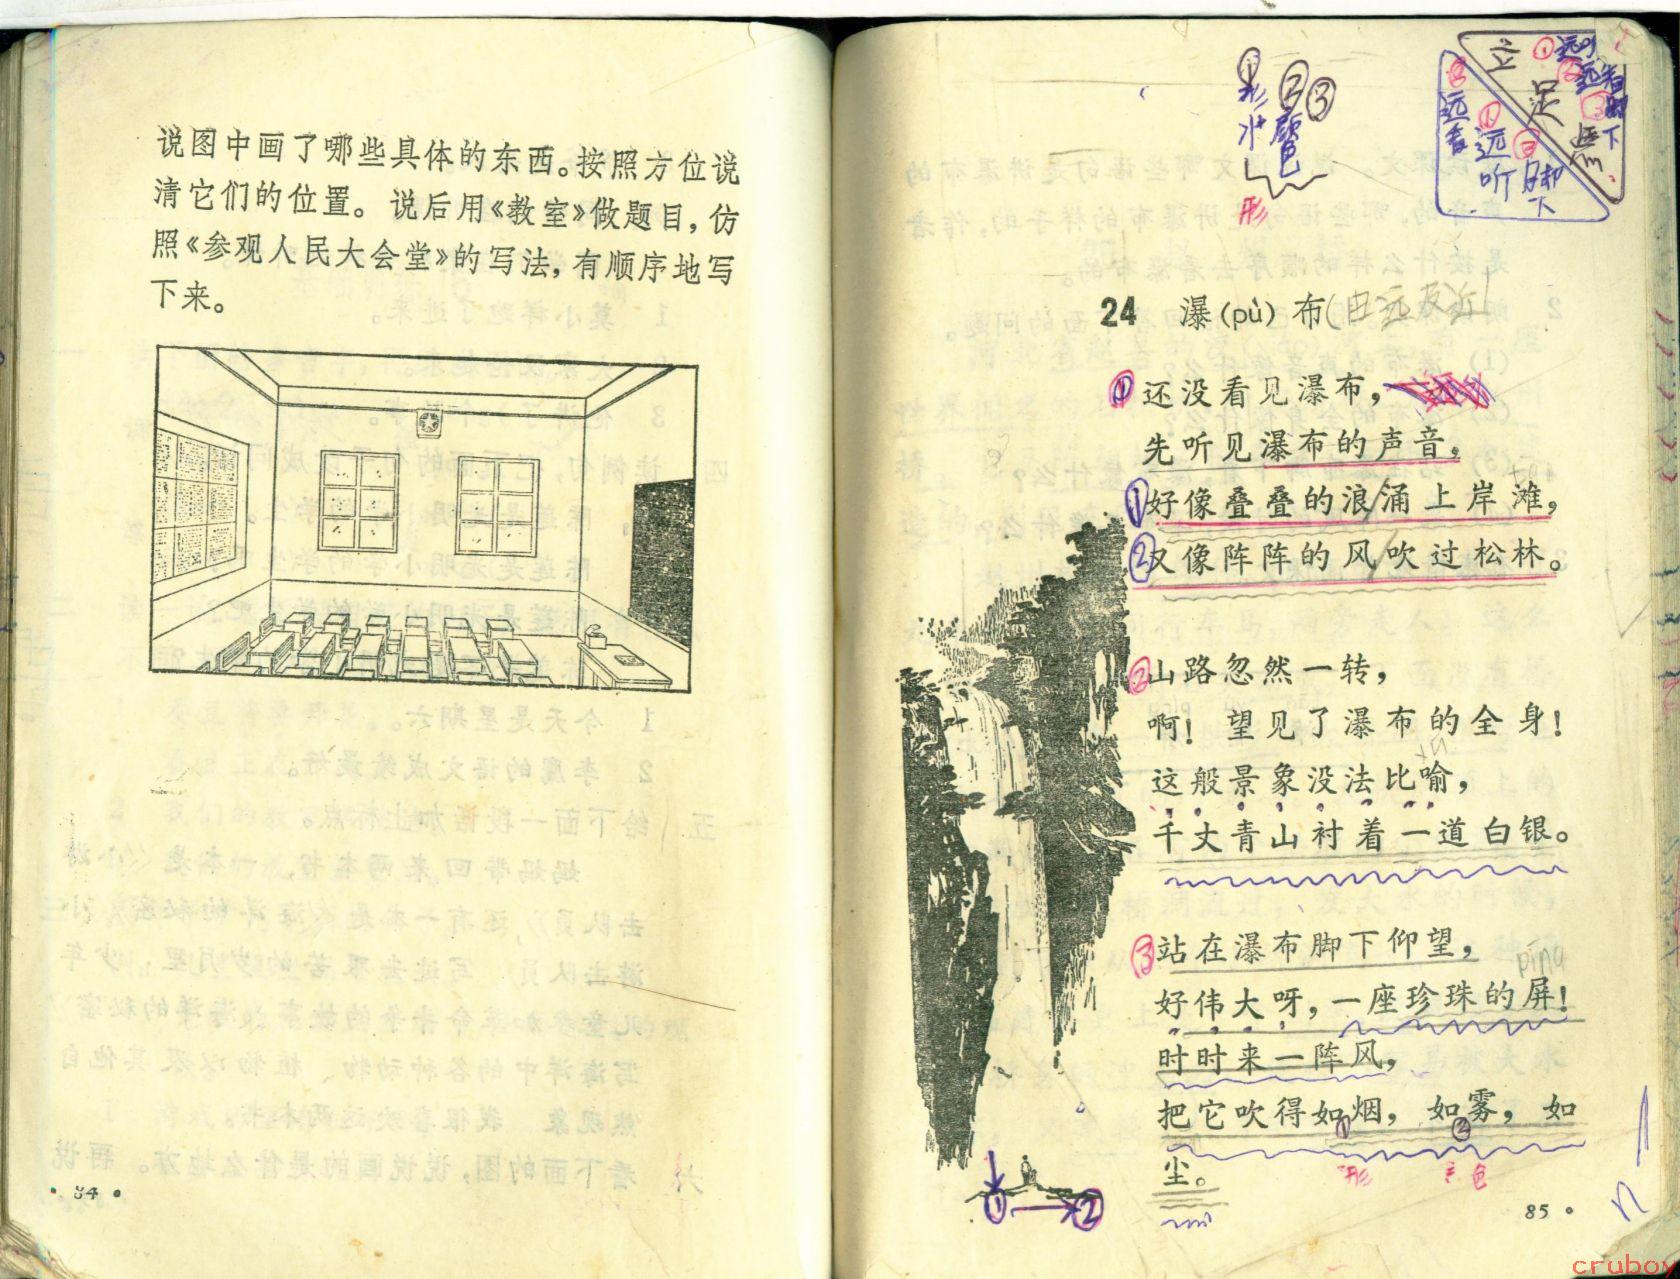 说图中画了哪些具体的东西。按照方位说
清它们的位置。说后用《教室》做题目，仿
照《参观人民大会堂》的写法，有顺序地写
下来。
84
①②③
形
水
颜色
形
立足点
①远听
②远看
③脚下
②远看
①远听
③脚下
24 瀑(pù)布(由远及近)
①还没看见瀑布，
先听见瀑布的声音，
①好像叠叠的浪涌上岸滩，
②又像阵阵的风吹过松林。
②山路忽然一转，
啊！望见了瀑布的全身！
这般景象没法比喻，
千丈青山衬着一道白银。
③站在瀑布脚下仰望，
好伟大呀，一座珍珠的屏！
píng
时时来一阵风，
把它吹得如烟，如雾，如
①②
形 色
尘。
①②
85
cruboy